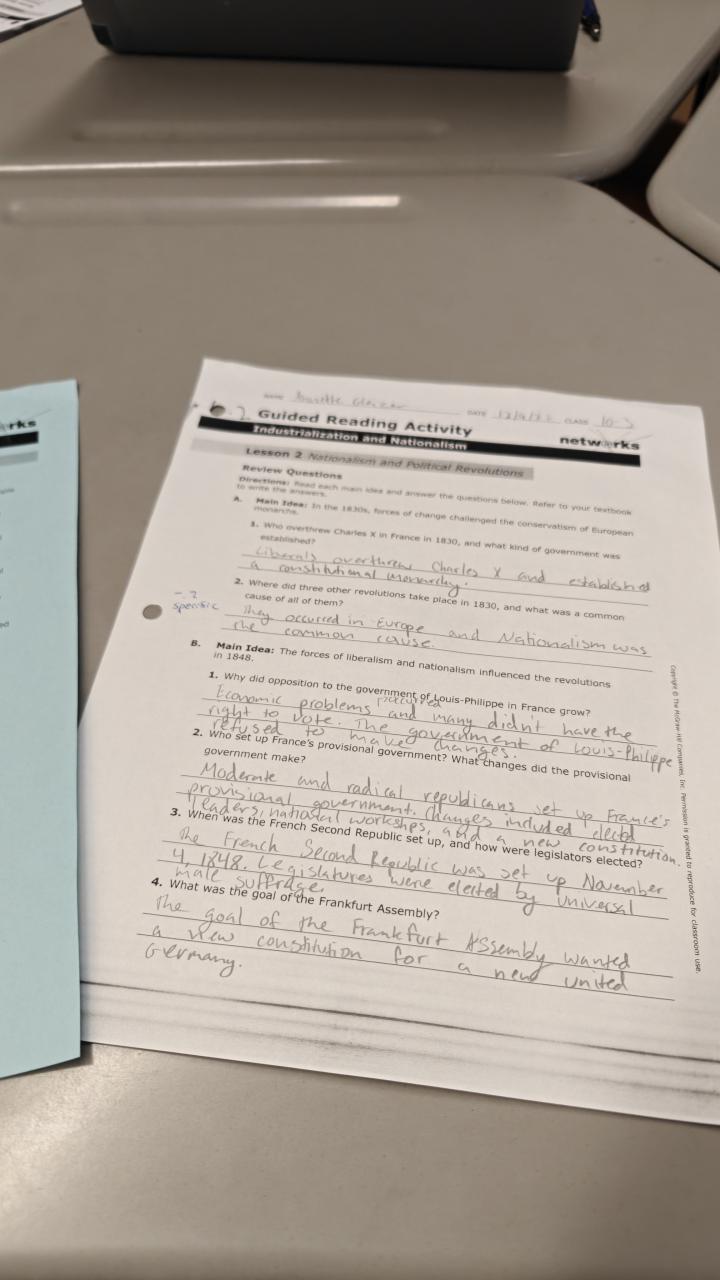 rks
NAME
DATE 12/9/22 CLASS 10-3
Guided Reading Activity
Industrialization and Nationalism
networks
Lesson 2 Nationalism and Political Revolutions
Review Questions
Directions: Read each main idea and answer the questions below. Refer to your textbook
to write the answers.
A. Main Idea: In the 1830s, forces of change challenged the conservatism of European
monarchs.
1. Who overthrew Charles X in France in 1830, and what kind of government was
established?
Liberals overthrew Charles X and established
a constitutional monarchy.
2. Where did three other revolutions take place in 1830, and what was a common
cause of all of them?
-.? 
specific
They occurred in Europe and Nationalism was
the common cause.
B. Main Idea: The forces of liberalism and nationalism influenced the revolutions
in 1848.
1. Why did opposition to the government of Louis-Philippe in France grow?
Economic problems occurred and many didn't have the
right to vote. The government of Louis-Philippe
refused to make changes.
2. Who set up France's provisional government? What changes did the provisional
government make?
Moderate and radical republicans set up France's
provisional government. Changes included electd
leaders, national workshps, and a new constitution.
3. When was the French Second Republic set up, and how were legislators elected?
The French Second Republic was set up November
4, 1848. Legislatures were elected by universal
male suffrage.
4. What was the goal of the Frankfurt Assembly?
The goal of the Frankfurt Assembly wanted
a new constitution for a new united
Germany.
Copyright © The McGraw-Hill Companies, Inc. Permission is granted to reproduce for classroom use.